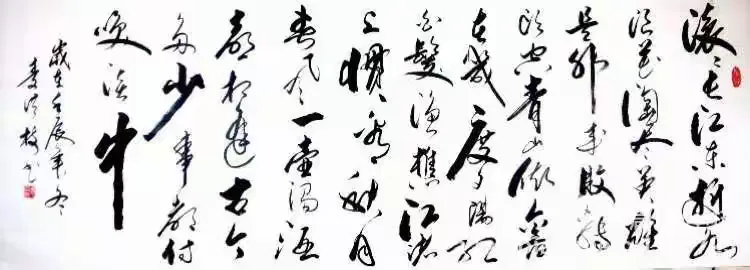 滚滚长江东逝水
浪花淘尽英雄
是非成败转
头空青山依旧
在几度夕阳红
白髮渔樵江渚
上惯看秋月
春风一壶浊酒
喜相逢古今
多少事都付
笑谈中
岁在壬辰年冬
李